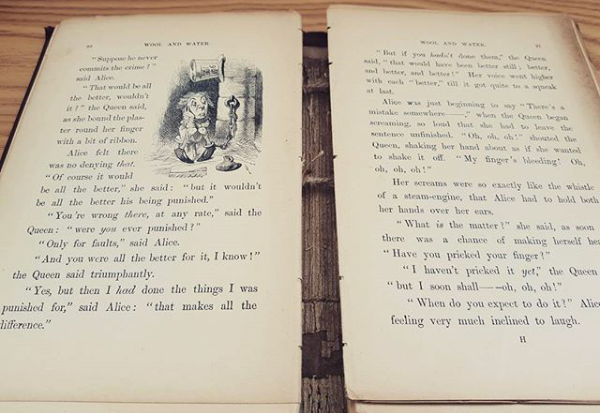 WOOL AND WATER.
"Suppose he never
commits the crime?"
said Alice.
"That would be all
the better, wouldn't
it?" the Queen said,
as she bound the plas-
ter round her finger
with a bit of ribbon.
Alice felt there
was no denying that.
"Of course it would
be all the better," she said: "but it wouldn't
be all the better his being punished."
"You're wrong there, at any rate," said the
Queen: "were you ever punished?"
"Only for faults," said Alice.
"And you were all the better for it, I know!"
the Queen said triumphantly.
"Yes, but then I had done the things I was
punished for," said Alice: "that makes all the
difference."
WOOL AND WATER.
97
"But if you hadn't done them," the Queen
said, "that would have been better still; better,
and better, and better!" Her voice went higher
with each "better," till it got quite to a squeak
at last.
Alice was just beginning to say "There's a
mistake somewhere——," when the Queen began
screaming, so loud that she had to leave the
sentence unfinished. "Oh, oh, oh!" shouted the
Queen, shaking her hand about as if she wanted
to shake it off. "My finger's bleeding! Oh,
oh, oh, oh!"
Her screams were so exactly like the whistle
of a steam-engine, that Alice had to hold both
her hands over her ears.
"What is the matter?" she said, as soon
there was a chance of making herself hea
"Have you pricked your finger?"
"I haven't pricked it yet," the Queen
"but I soon shall——oh, oh, oh!"
"When do you expect to do it?" Alic
feeling very much inclined to laugh.
H